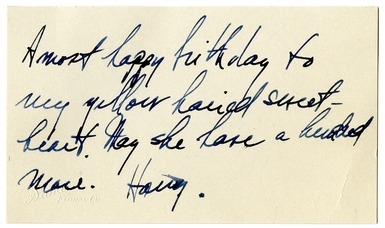 A most happy birthday to
my yellow haired sweet-
heart. May she have a hundred
more. Harry.